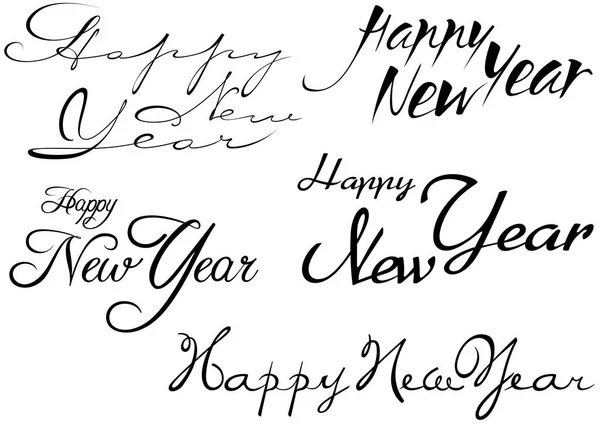 Happy
New
Year
Happy
New Year
Happy
New Year
Happy
New Year
Happy New Year